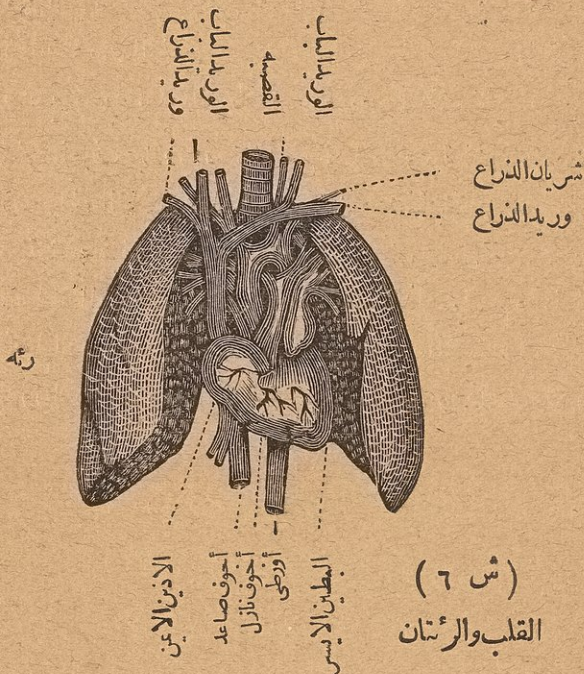 الوريد الباب
القصبه
الوريد الباب
وريد الذراع
شريان الذراع
وريد الذراع
رئه
الاذين الايمن
أجوف صاعد
أجوف نازل
أورطى
البطين الايسر
(ش ٦)
القلب والرئتان